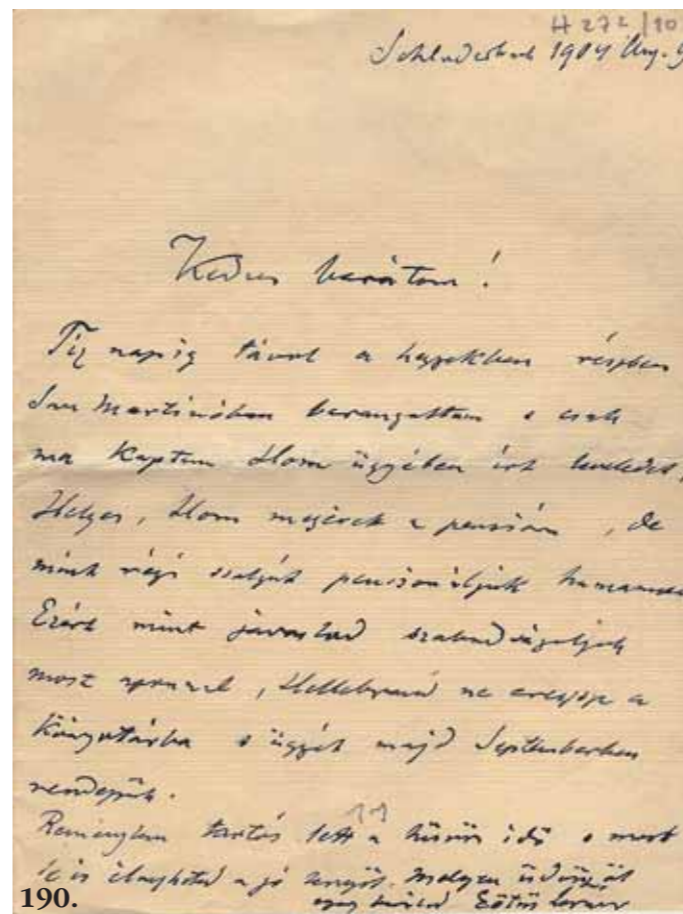 H 272/10
Schluderbach 1904 Aug. 9
Kedves barátom!
Tiz napig távol a hegyekben részben
San Martinóban barangoltam s csak
ma kaptam Hom ügyében írt leveledet,
Helyes, Hom megérett a penzióra, de
mint régi szolgát penzionáljuk
Ezért mint javaslod szabadságoljuk
most, Hellebrand ne eressze a
könyvtárba s ügyét majd Septemberben
rendezzük.
Reménylem tartós lett a hűvös idő s most
te is élvezheted a jó levegőt. Melegen üdvözöl
igaz barátod Eötvös Loránd
190.